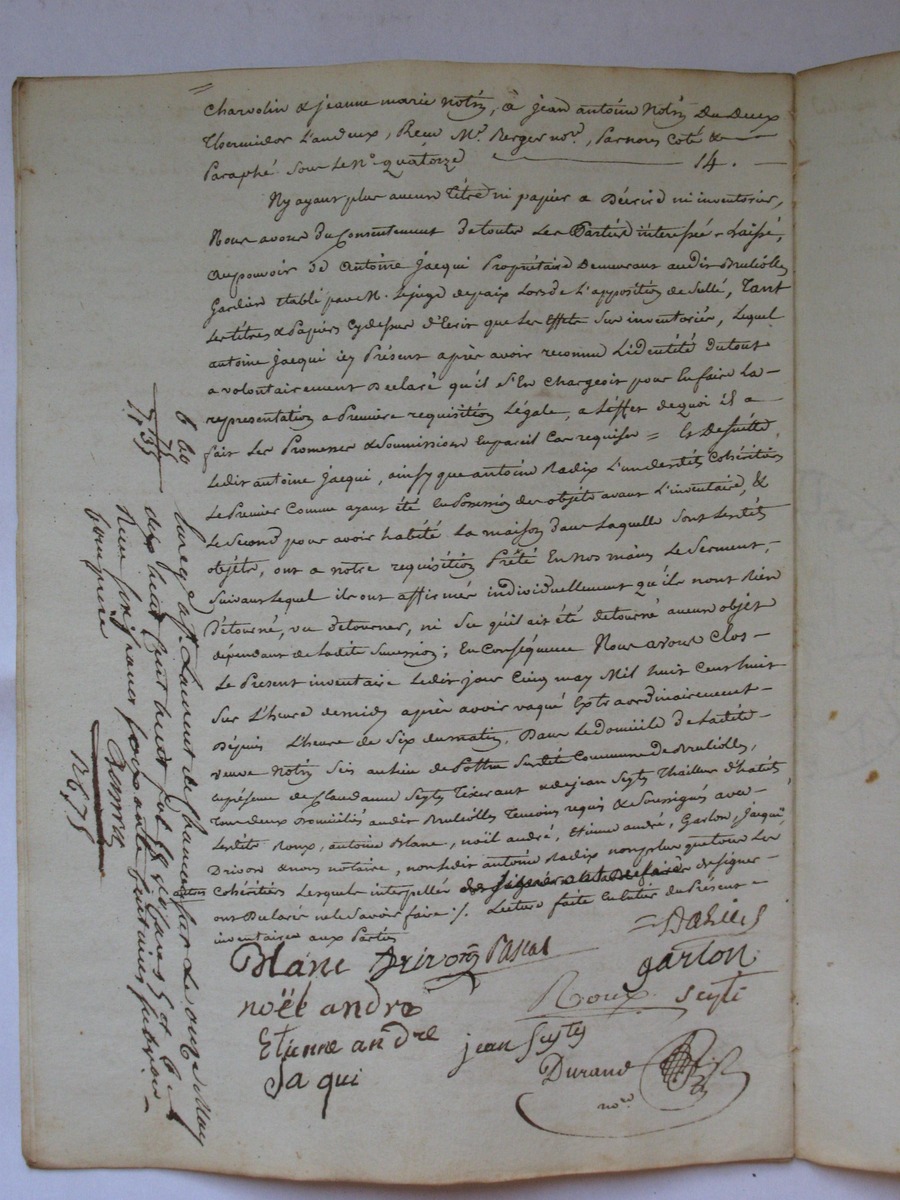 Charvolin & jeanne marie Notin, à jean antoine Notin Du Deux
Thermidor L'an deux, Reçu Mr. Berger nore., Par nous Coté &
Paraphé sous le no. quatorze 14.
Ny ayant plus aucun Titre ni papier a Décrire ni inventorier,
Nous avons du Consentement de toutes Les Parties interessé Laissé,
au pouvoir de Antoine Jacqui Propriétaire Demeurant audit Brulioles
Gardien établi par M. Le juge de paix Lors de L'apposition de scellé, Tant
Les titres & Papiers Cy dessus d'Ecrit que Les Effets Sus inventoriés, Lequel
antoine Jacqui icy Présent après avoir reconnu L'identité du tout
a volontairement Declaré qu'il s'En Chargeoit pour En faire La
representation a Premiere requisition Légale, a L'effet de quoi il a
fait Les Promesses & Soumissions En pareil Cas requises = Et De suitte,
Ledit antoine Jacqui, ainsy que antoine Radix L'un desdits Cohéritiers
Le Premier Comme ayant été En Possession des objets avant L'inventaire, &
Le Second pour avoir habité La maison dans Laquelle Sont Lesdits
objets, ont a notre requisition Prêté En nos mains Le Serment,
Suivant Lequel ils ont affirmés individuellement qu'ils n'ont Rien
Détourné, vu detourner, ni Su qu'il ait été detourné aucun objet
dépendant de Ladite Succession; En Conséquence Nous avons Clos
Le Présent inventaire Ledit jour Cinq may Mil huit Cent huit
Sur L'heure de midy après avoir vaqué Extraordinairement
Depuis L'heure de Six du matin, Dans Le domicile de Ladite
veuve Notin Sis au lieu de Susdite Commune de Brulioles,
en présence de Claudanne Seyty Tixerant & de jean Seyty Thailleur d'habits
Tous deux Domiciliés audit Brulioles Temoins requis & Soussignés avec
Lesdits Roux, antoine Blanc, noël andré, Etienne andré, Garlon, Jacqui,
Drivon & nous notaire, non Ledit antoine Radix non plus que tous Les
autres Cohéritiers Lesquels interpellés de signer
ont Declaré ne le Savoir faire ./. Lecture faite En Entier du Présent
inventaire aux Parties
Blanc Drivon Pascal
garlon
noël andre Roux Seyti
Etienne andre jean Seyty
Jaqui Durand
nore.
6 60
75
7. 35
Enregé. a St. Laurent de Chamousset Le onze May
dix huit Cent huit fol.
Reçu six francs soixante Centimes subvon.
Comprise